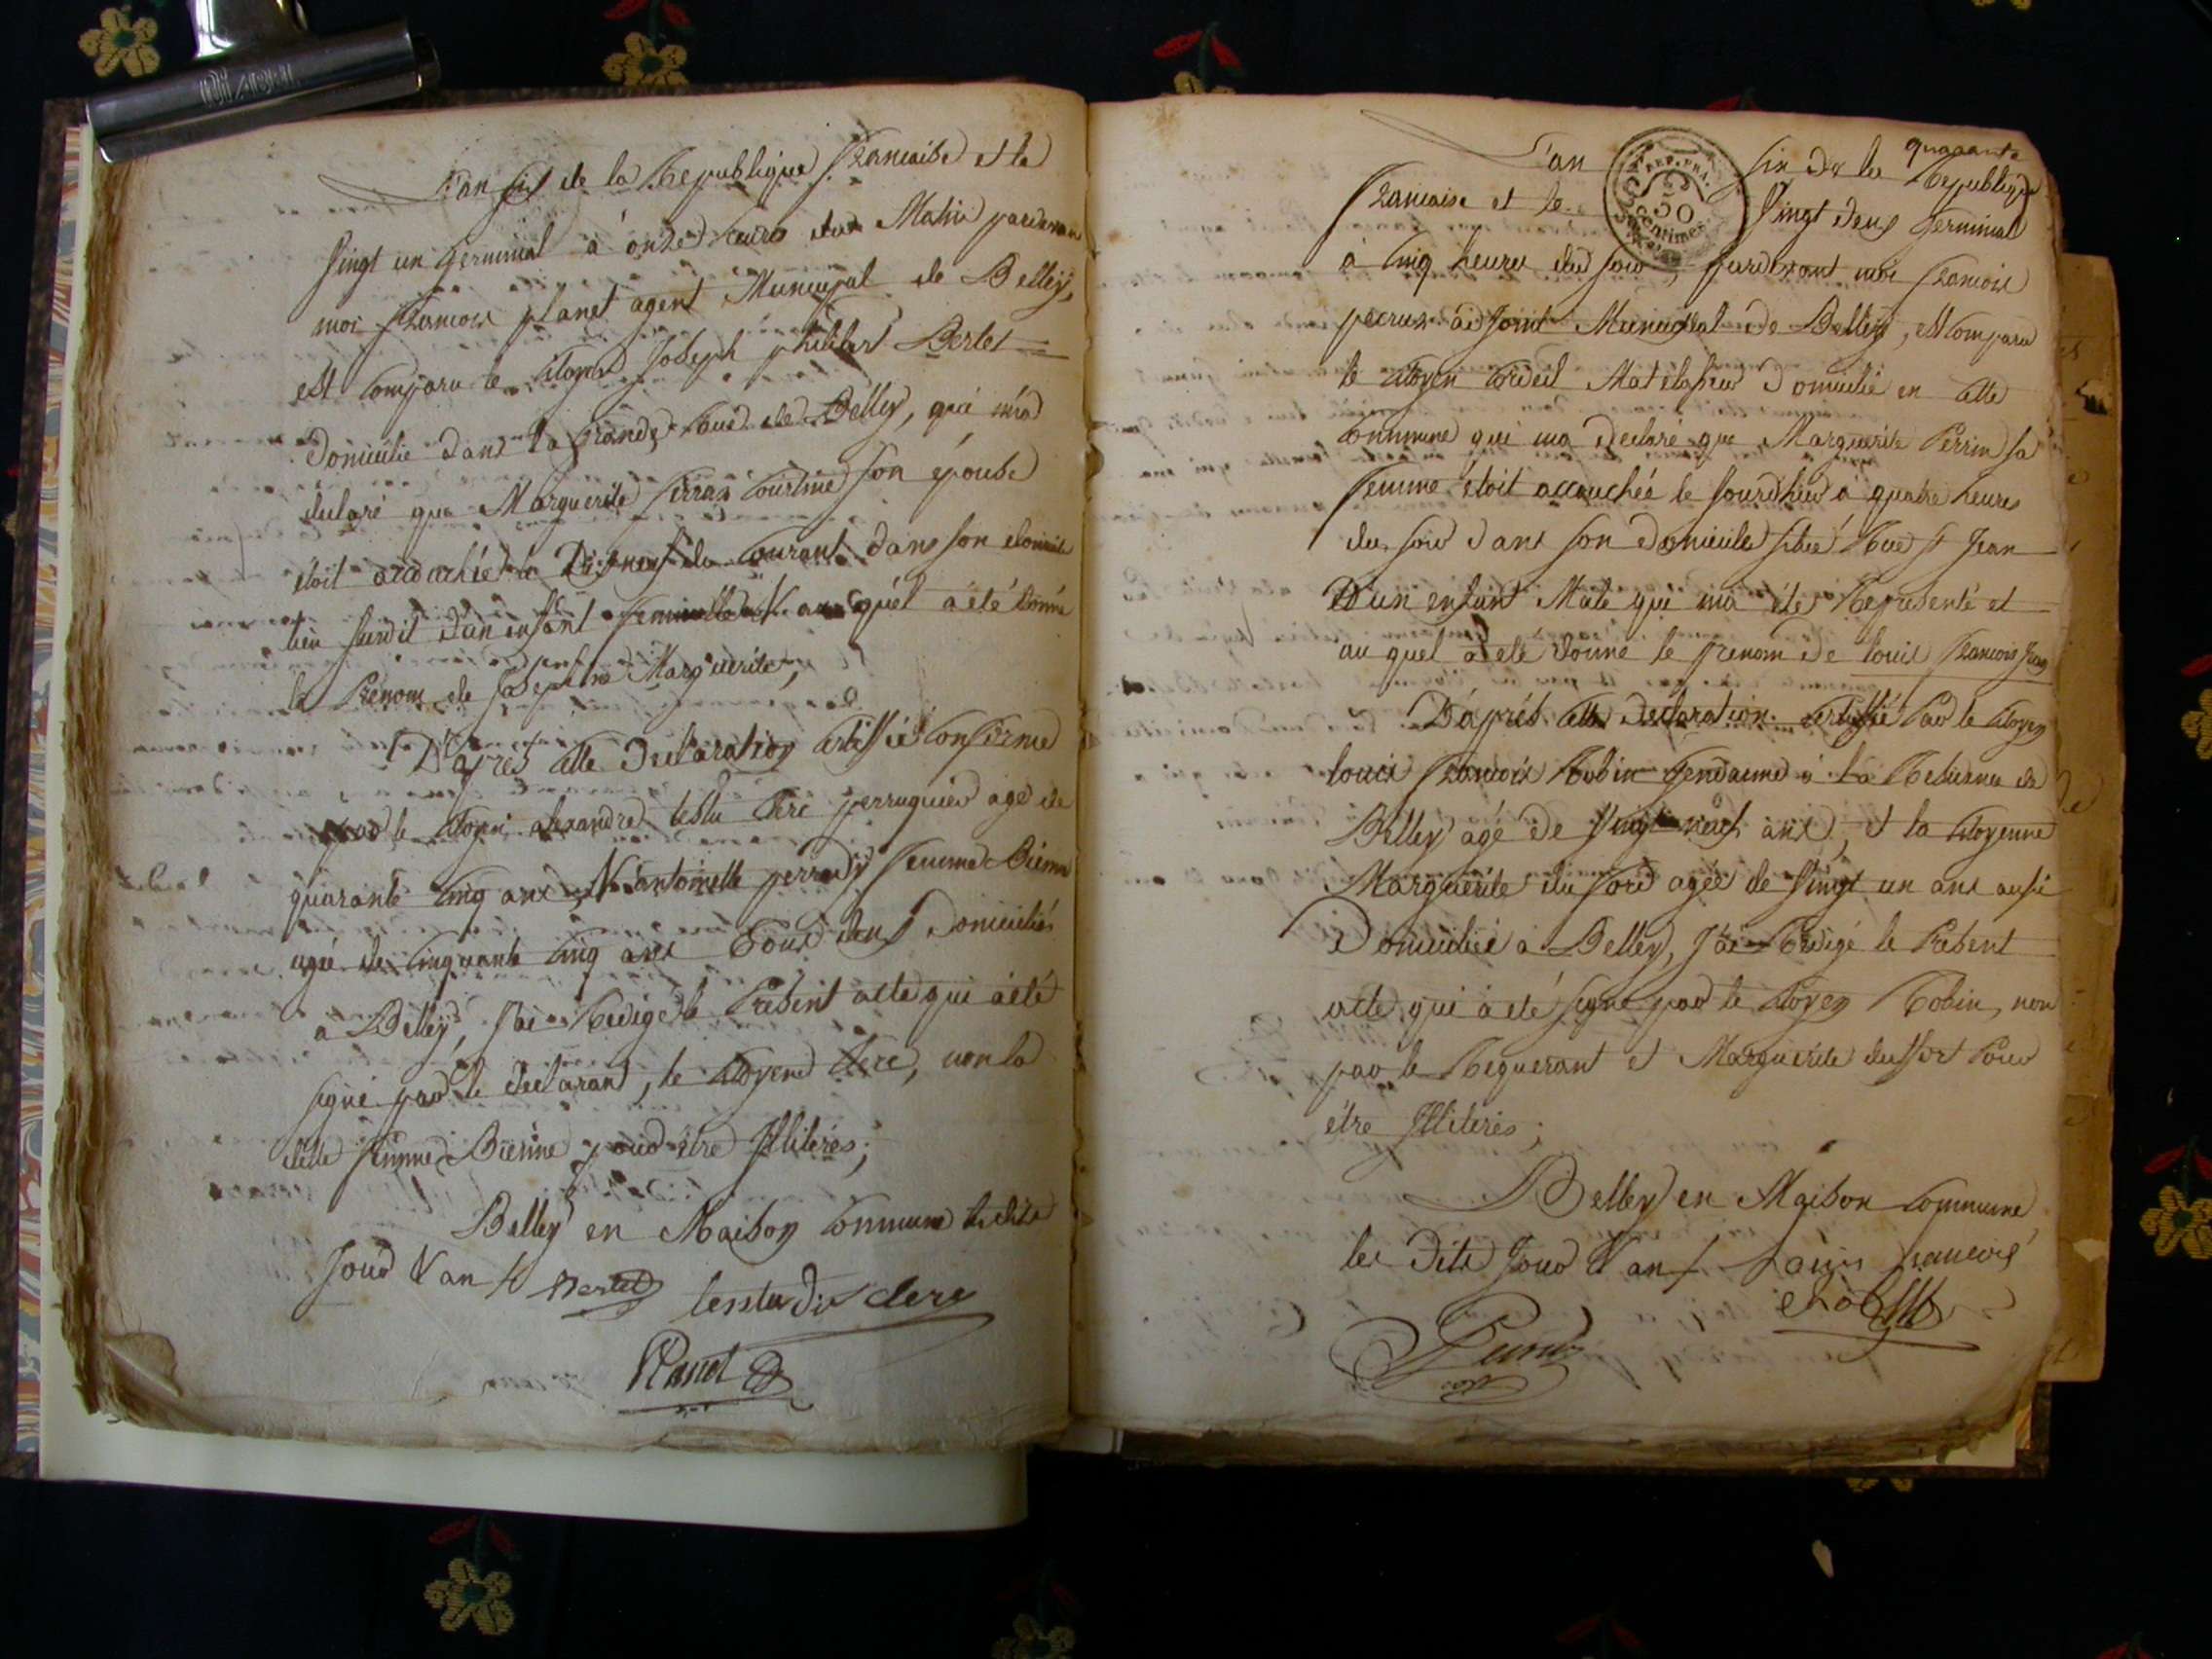 L'an six de la Republique francaise et le
Vingt un Germinal à onze heures du Matin pardevan
moi francois planet agent Municipal de Belley,
est Comparu le Citoyen Joseph philibert Bertet
Domicilié dans la Grande Rue de Belley, qui m'a
declaré que Marguerite son épouse
étoit accouchée le Dixneuf du Courant dans son domicile
lieu susdit d'un enfant femelle auquel a été donné
le Prenom de Josephine Marguerite,
D'après cette Declaration Certifiée Conforme
par le Citoyen alexandre Clerc perruquier agé de
quarante Cinq ans & antoinette femme Bienne
agée de Cinquante Cinq ans Tous deux Domiciliés
a Belley, J'ai Redigé le Présent acte qui a été
signé par le declarant, le Citoyen Clerc, non la
dite femme Bienne pour être Illiterés;
Belley en Maison Commune lesdits
Jour & an Bertet clerc
Planet
quarante
L'an six de la Republique
REP. FRA.
50
centimes
francaise et le Vingt deux Germinal
à Cinq heures du soir, pardevant moi francois
adjoint Municipal de Belley, est Comparu
le Citoyen Matelasseur Domicilié en cette
Commune qui m'a declaré que Marguerite Perrin sa
femme étoit accouchée le jourdhui à quatre heures
du soir dans son domicile situé Rue st Jean
D'un enfant Male qui m'a été Representé et
au quel a été donné le prenom de Louis francois
D'après cette Declaration Certiffié Par le Citoyen
Louis francois Robin Gendarme à la Residence de
Belley agé de Vingt neuf ans, et la Citoyenne
Marguerite du fort agée de Vingt un ans aussi
Domiciliée à Belley, J'ai Redigé le Présent
acte qui a été signé par le Citoyen Robin, non
par le Requerant et Marguerite duffort Pour
être Illiterés;
Belley en Maison Commune
les Dits Jour & an Louis francois
Robin